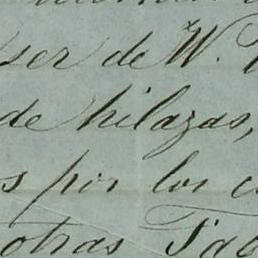 ser de W.
de hilazas,
s por los
otras